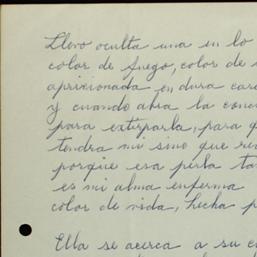 Llevo oculta una en lo
color de fuego, color de
aprixionada en dura car
y cuando abia la conc
para extirparla, para q
tendra mi sino que re
porque esa perla ta
es mi alma enferma
color de vida, hecha p
Ella se acerca a su c